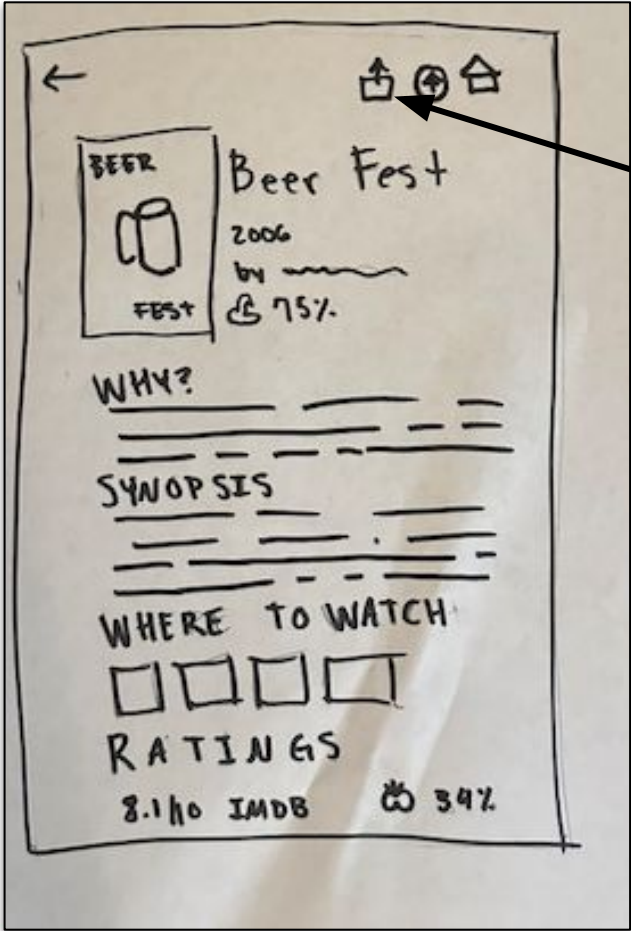 BEER
FEST
Beer Fest
2006
by
75%
WHY?
SYNOPSIS
WHERE TO WATCH
RATINGS
8.1/10 IMDB 39%